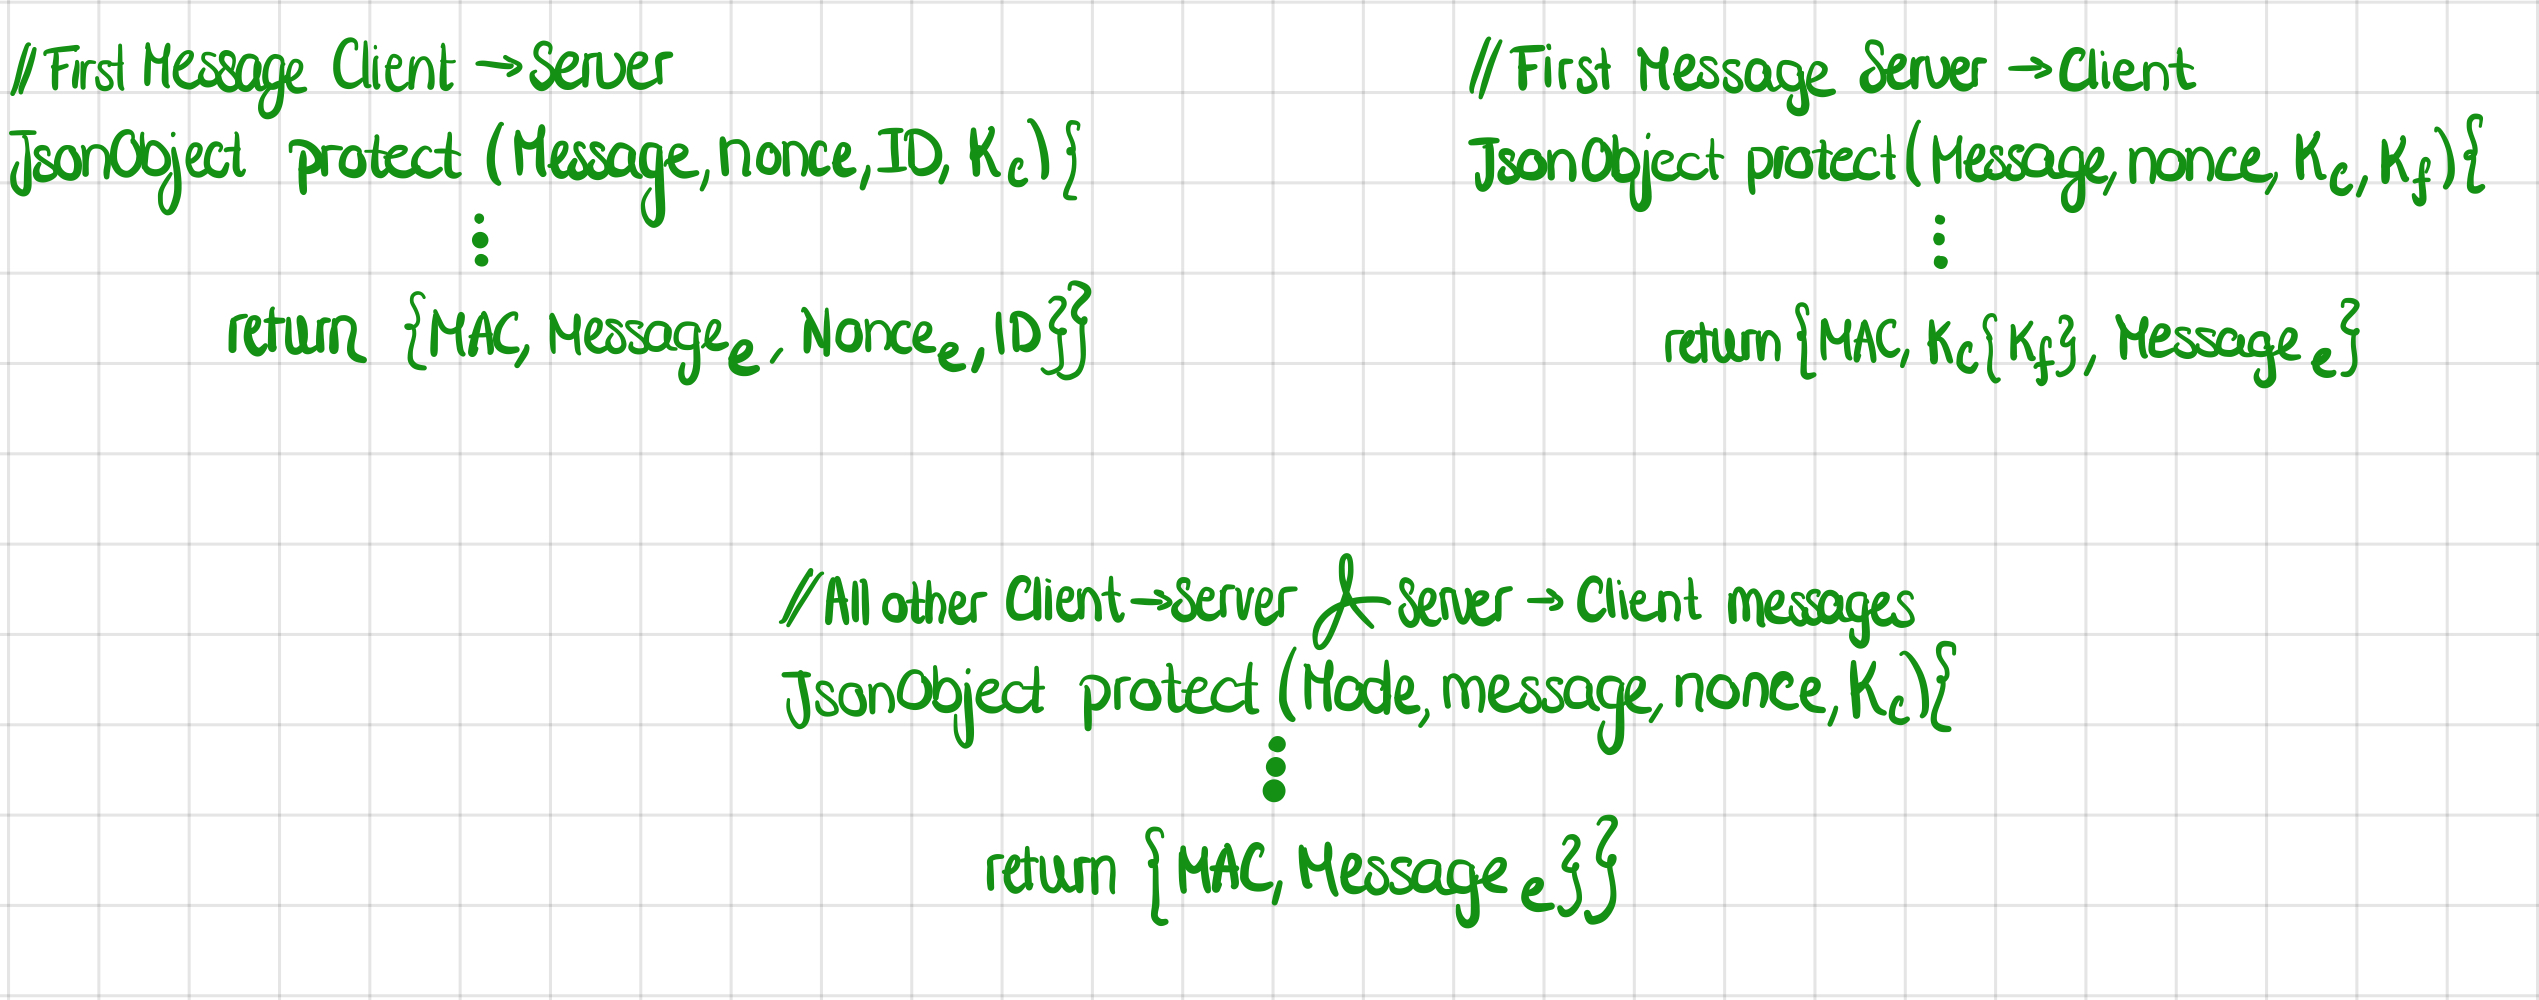 //First Message Client → Server
JsonObject protect (Message, nonce, ID, Kc) {
return {MAC, Messagee, Noncee, ID}}
//First Message Server → Client
JsonObject protect (Message, nonce, Kc, Kf) {
return {MAC, Kc{Kf}, Messagee}
//All other Client → Server & Server → Client messages
JsonObject protect (Mode, message, nonce, Kc) {
return {MAC, Messagee}}